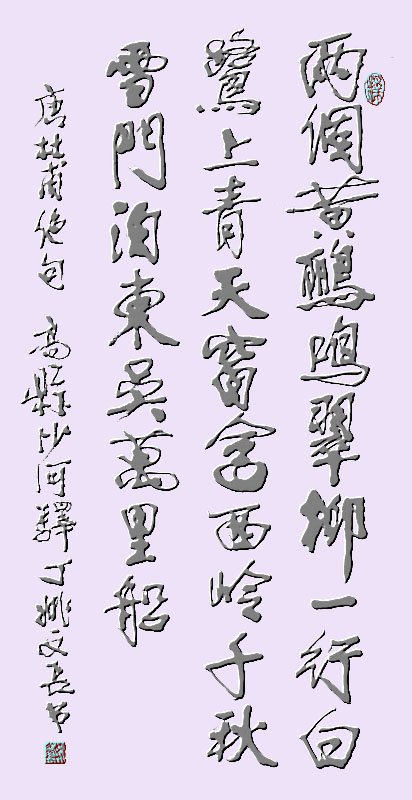 兩個黃鸝鳴翠柳一行白
鷺上青天窗含西岭千秋
雪門泊東吳萬里船
唐杜甫绝句 高縣沙河驛丁姚文長书